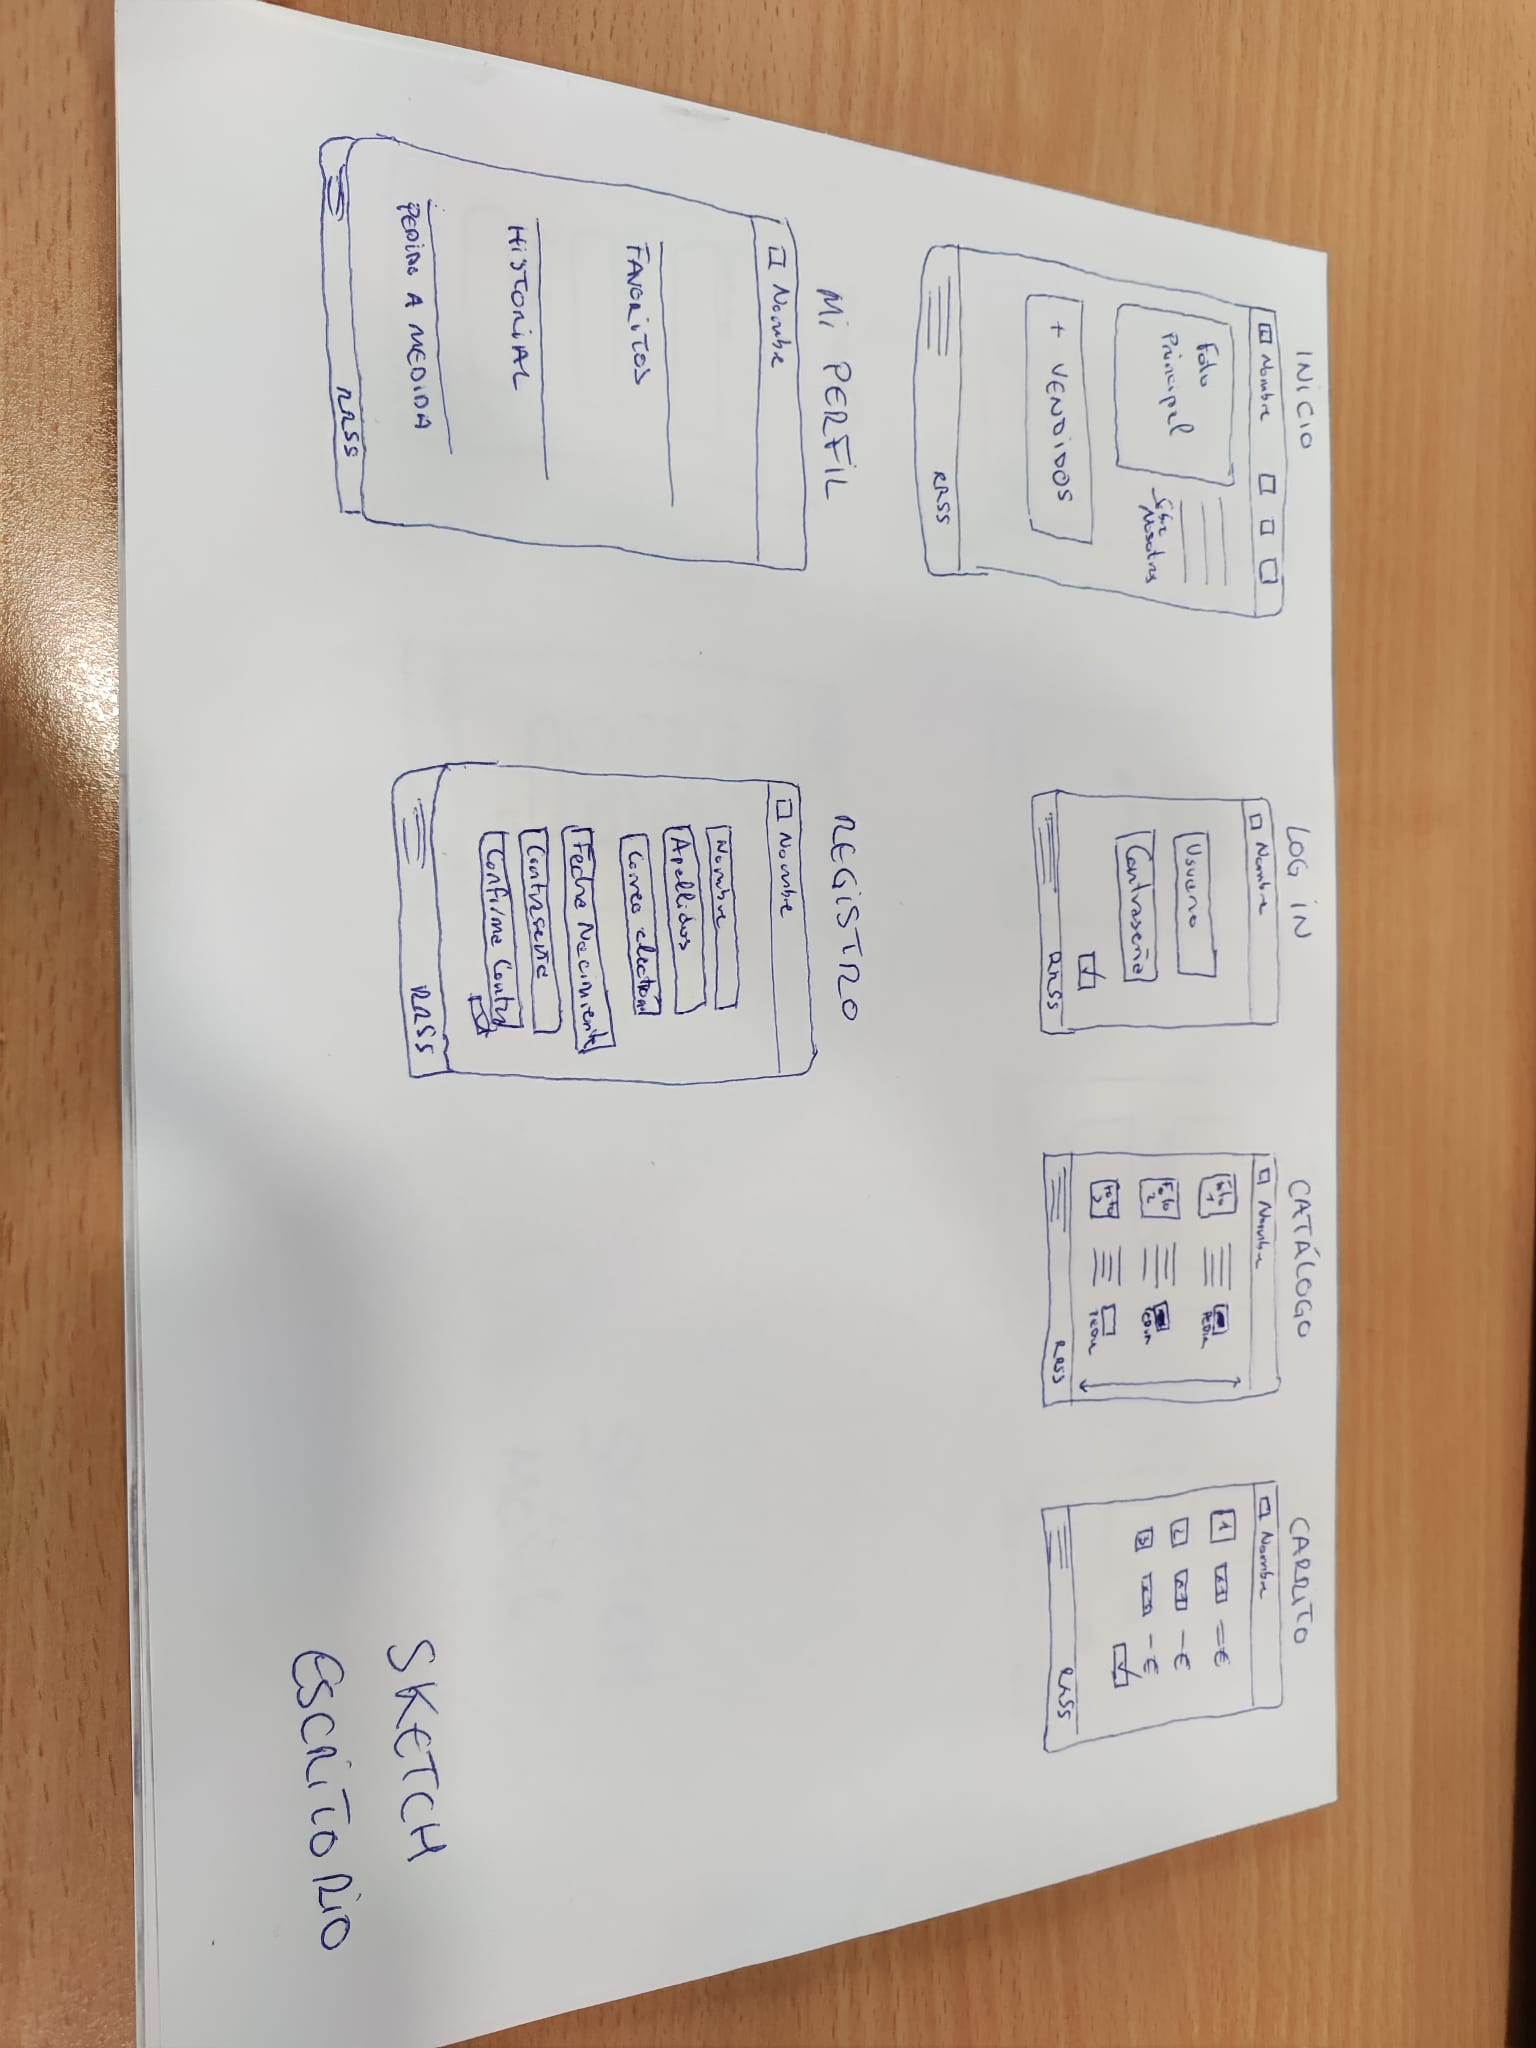 INICIO
Nombre
Foto
Principal
Sobre
Nosotros
+ VENDIDOS
RRSS
LOG IN
Nombre
Usuario
Contraseña
RRSS
CATÁLOGO
Nombre
Foto
1
PEDIR
Foto
2
PEDIR
Foto
3
PEDIR
RRSS
CARRITO
Nombre
1 x1 = €
2 x1 - €
3 - €
RRSS
Mi PERFIL
Nombre
FAVORITOS
HISTORIAL
PEDIDO A MEDIDA
RRSS
REGISTRO
Nombre
Nombre
Apellidos
Correo electrón
Fecha Nacimiento
Contraseña
Confirma Contra
RRSS
SKETCH
ESCRITORIO